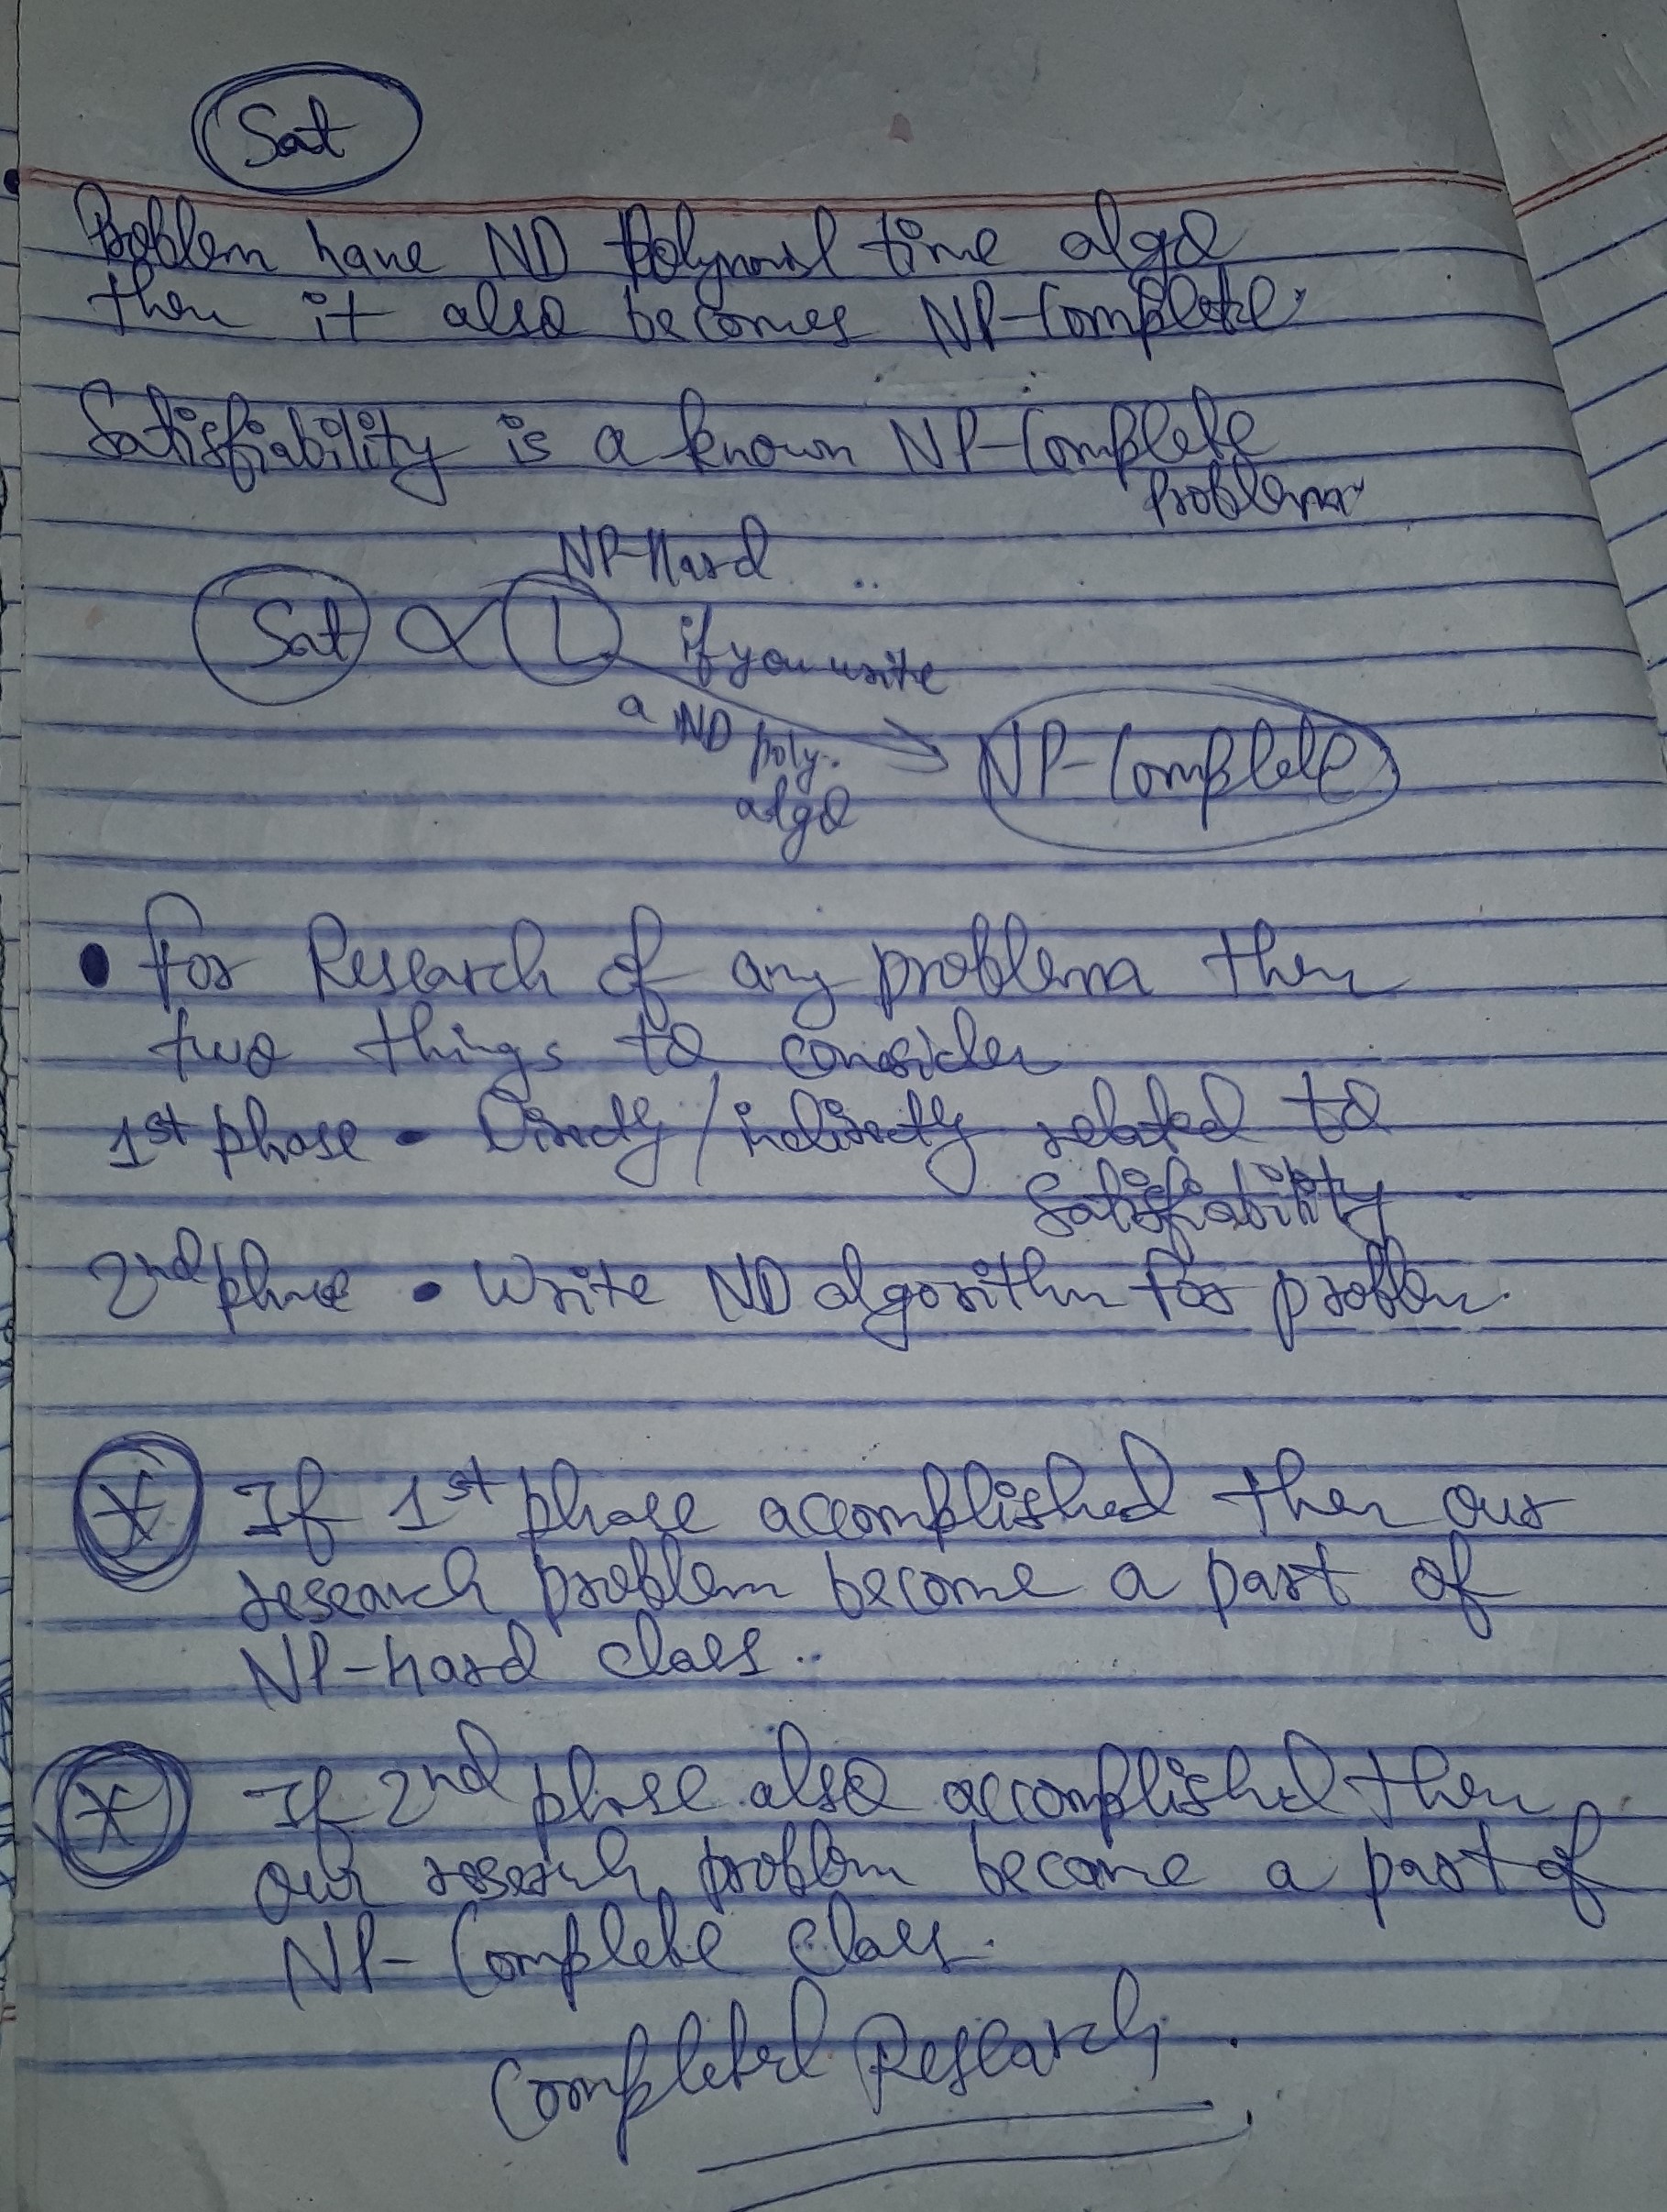 Sat
Problem have ND Polynomial time algo
then it also becomes NP-Complete.
Satisfiability is a known NP-Complete
Problem
NP-Hard
Sat ∝ L if you write
a ND poly. algo
NP-Complete
• For Research of any problem then
two things to consider
1st phase • Directly/indirectly related to
Satisfiability
2nd phase • Write ND algorithm for problem.
* If 1st phase accomplished then our
research problem become a part of
NP-hard class..
* If 2nd phase also accomplished then
our research problem become a part of
NP-Complete class.
Completed Research.